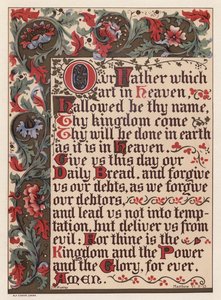 Our Father which
art in heaven,
Hallowed be thy name,
Thy kingdom come
Thy will be done in earth
as it is in Heaven
Give us this day our
Daily Bread, and forgive
us our debts, as we forgive
our debtors,
and lead us not into temp-
tation, but deliver us from
evil: For thine is the
Kingdom and the Power
and the Glory, for ever.
Amen.